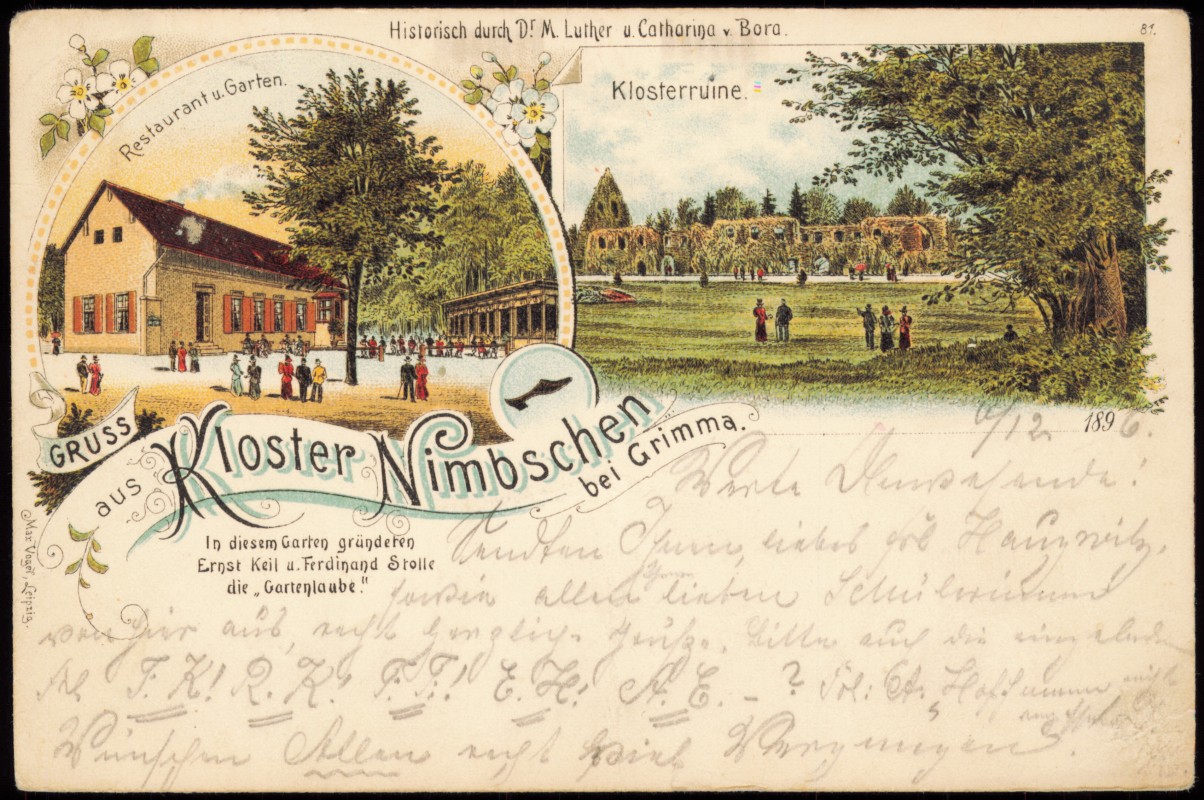 Historisch durch Dr. M. Luther u. Catharina v. Bora.
81.
Restaurant u. Garten.
Klosterruine.
GRUSS
aus Kloster Nimbschen
bei Grimma.
In diesem Garten gründeten
Ernst Keil u. Ferdinand Stolle
die „Gartenlaube."
Max Vogel, Leipzig.
6/12. 1896.
Werte
Senden Ihnen, liebes Frl.
sowie allen lieben Schülerinnen
von hier aus recht herzliche Grüße. Bitte auch die
F. K! R. K! F. T! E. H! A. E. - ? Frl: A. Hoffmann
Wünschen Allen recht viel Vergnügen.